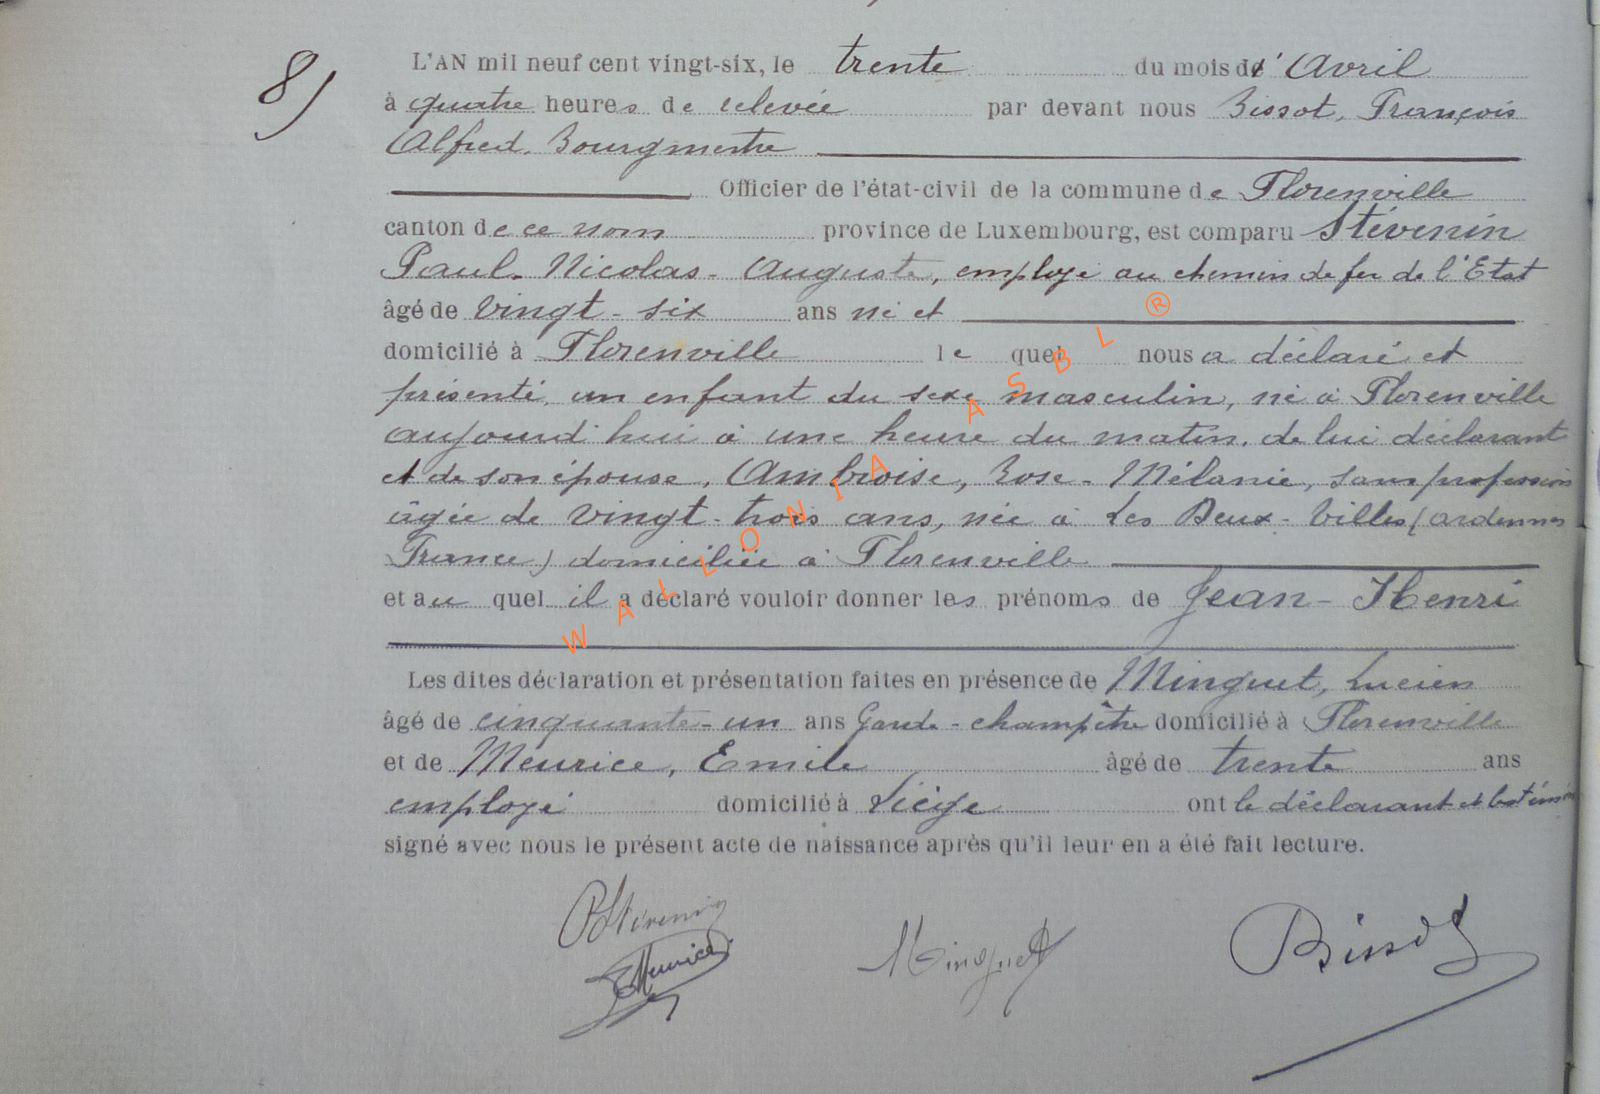 8)
L'AN mil neuf cent vingt-six, le trente du mois d'Avril
à quatre heures de relevée par devant nous Bissot, François
Alfred, Bourgmestre
Officier de l'état-civil de la commune de Florenville
canton de ce nom province de Luxembourg, est comparu Stévenin
Paul-Nicolas-Auguste, employé au chemin de fer de l'Etat
âgé de vingt-six ans né et
domicilié à Florenville lequel nous a déclaré et
présenté un enfant du sexe masculin, né à Florenville
aujourd'hui à une heure du matin, de lui déclarant
et de son épouse, Ambroise, Rose-Mélanie, sans profession
âgée de vingt-trois ans, née à Les Deux-Villes (ardennes
France) domiciliée à Florenville
et auquel il a déclaré vouloir donner les prénoms de Jean-Henri
Les dites déclaration et présentation faites en présence de Minguet, Lucien
âgé de cinquante-un ans Garde-champêtre domicilié à Florenville
et de Meurice, Emile âgé de trente ans
employé domicilié à Liége ont le déclarant et les témoins
signé avec nous le présent acte de naissance après qu'il leur en a été fait lecture.
PStévenin
EMeurice
Minguet
Bissot
WALLONIA ASBL ®